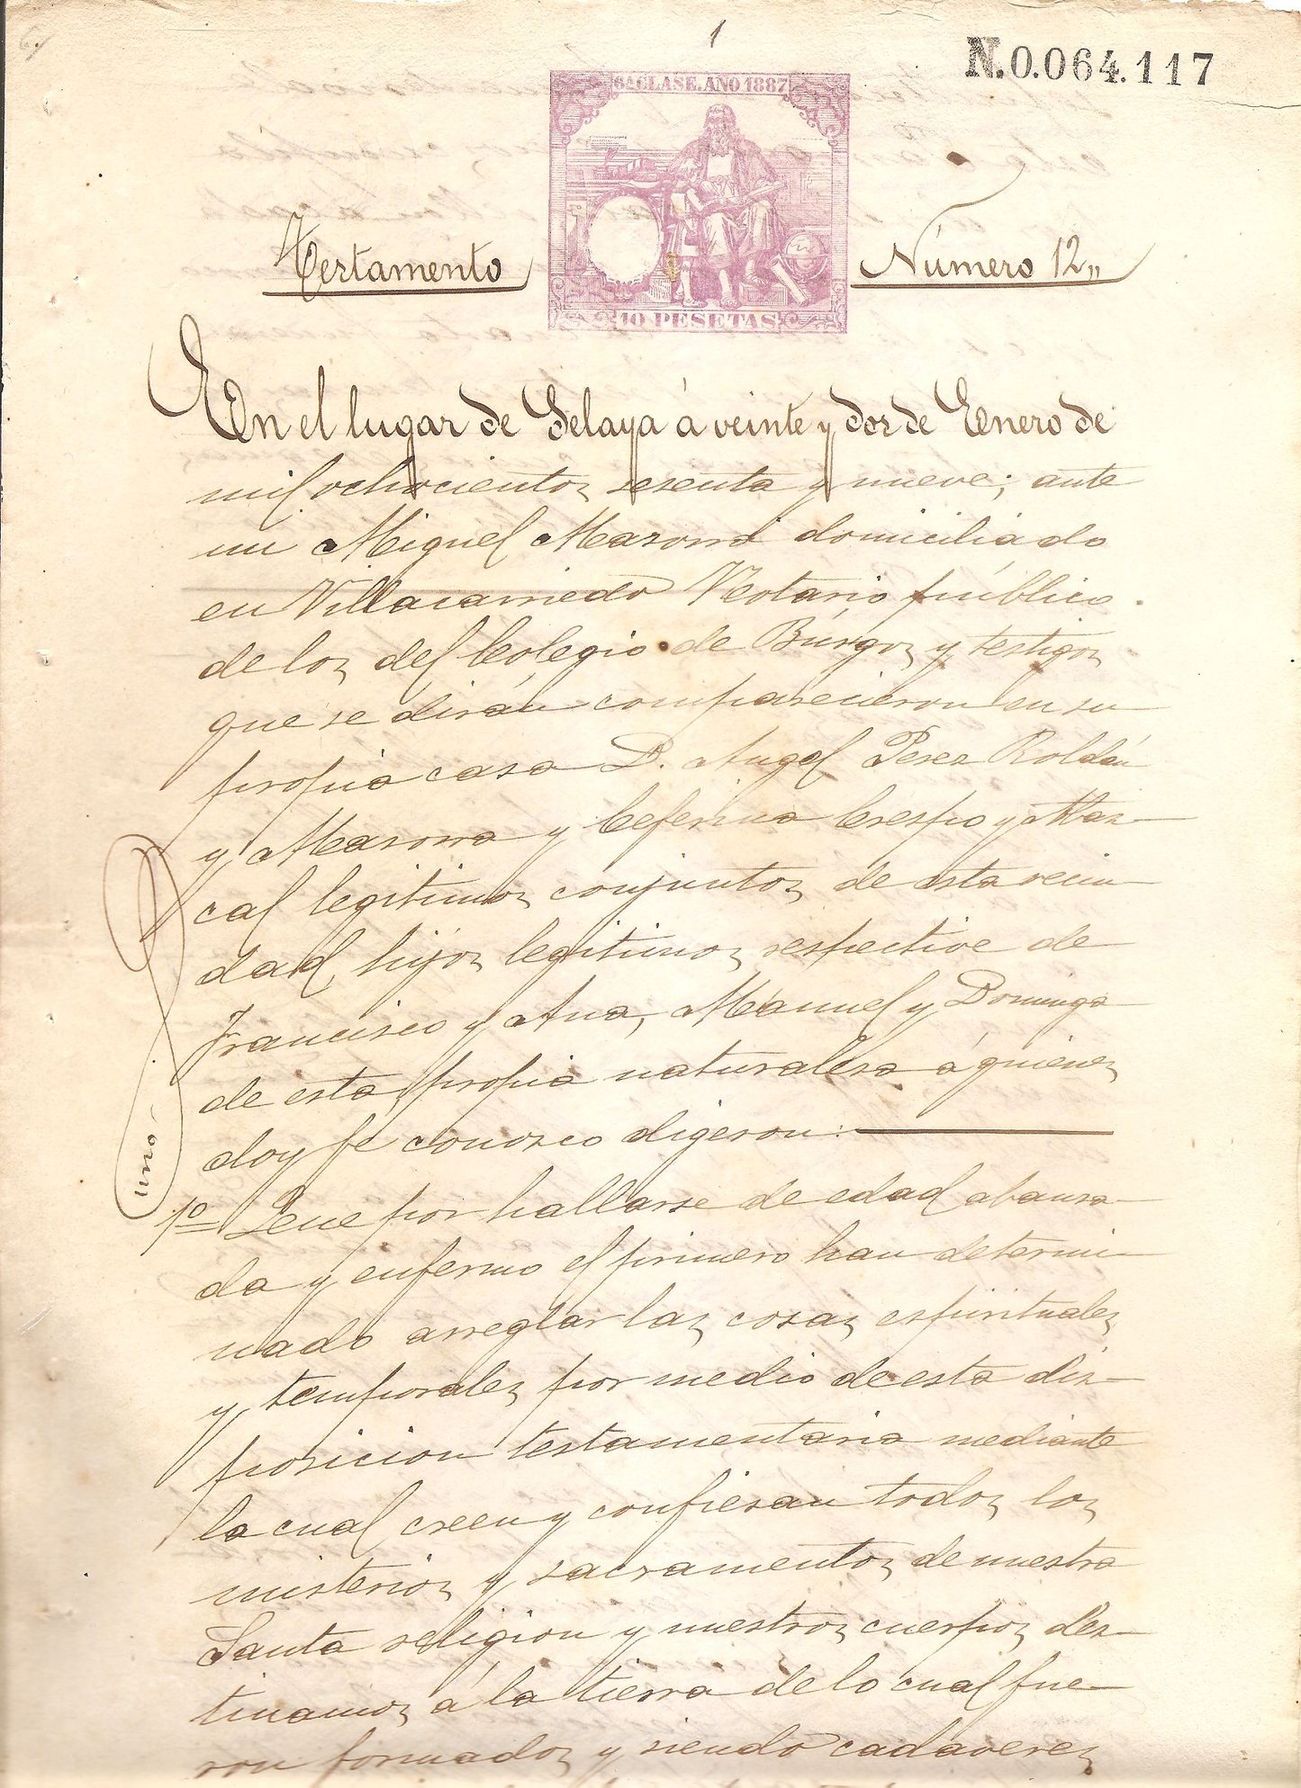 1
N.0.064.117
6ª CLASE. AÑO 1887
10 PESETAS
Testamento
Número 12,,
En el lugar de Selaya á veinte y dos de Enero de
mil ochocientos sesenta y nueve; ante
mi Miguel Mazorra domiciliado
en Villacarriedo Notario público
de los del Colegio de Búrgos y testigos
que se dirán comparecieron en su
propia casa D. Angel Perez Roldán
y Mazorra y Ceferina Crespo y Maz-
cal legitimos conjuntos de esta vecin-
dad, hijos legitimos respective de
Francisco y Ana, Manuel y Dominga
de esta propia naturalesa á quienes
doy fe conozco digeron:
1º Que por hallarse de edad abanza-
da y enfermo el primero han determi-
nado arreglar las cosas espirituales
y temporales por medio de esta dis-
posicion testamentaria mediante
la cual creen y confiesan todos los
misterios y sacramentos de nuestra
Santa religion y nuestros cuerpos des-
tinamos á la tierra de lo cual fue-
ron formados y siendo cadaveres
uno